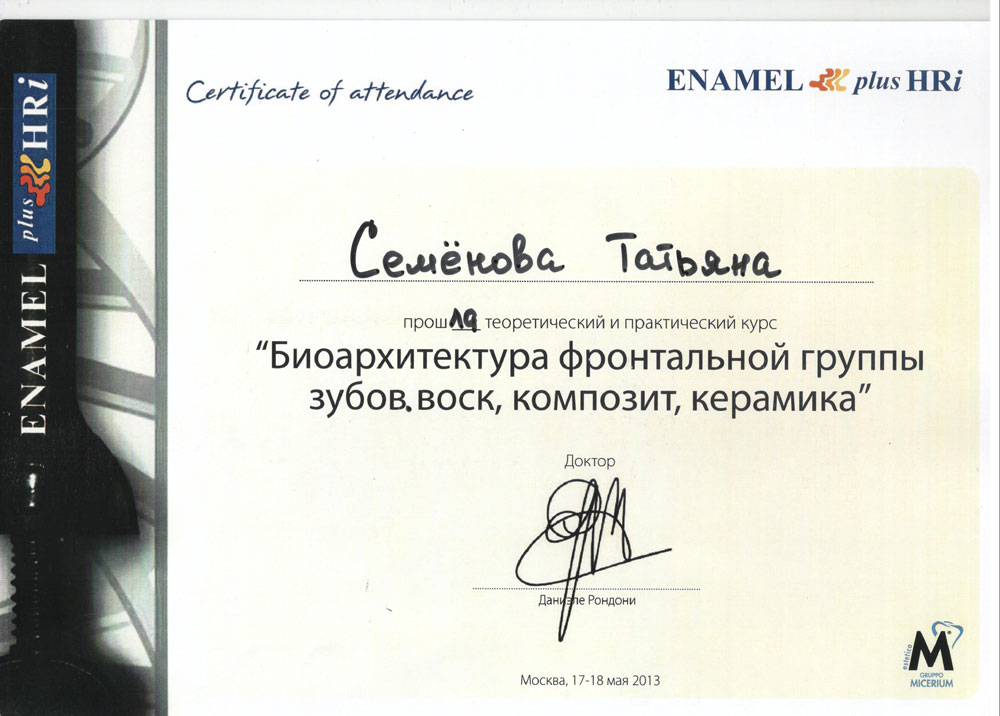 Certificate of attendance
ENAMEL plus HRi
ENAMEL plus HRi
Семёнова Татьяна
прошла теоретический и практический курс
“Биоархитектура фронтальной группы
зубов. воск, композит, керамика”
Доктор
Даниэле Рондони
Москва, 17-18 мая 2013
estetico
M
GRUPPO
MICERIUM